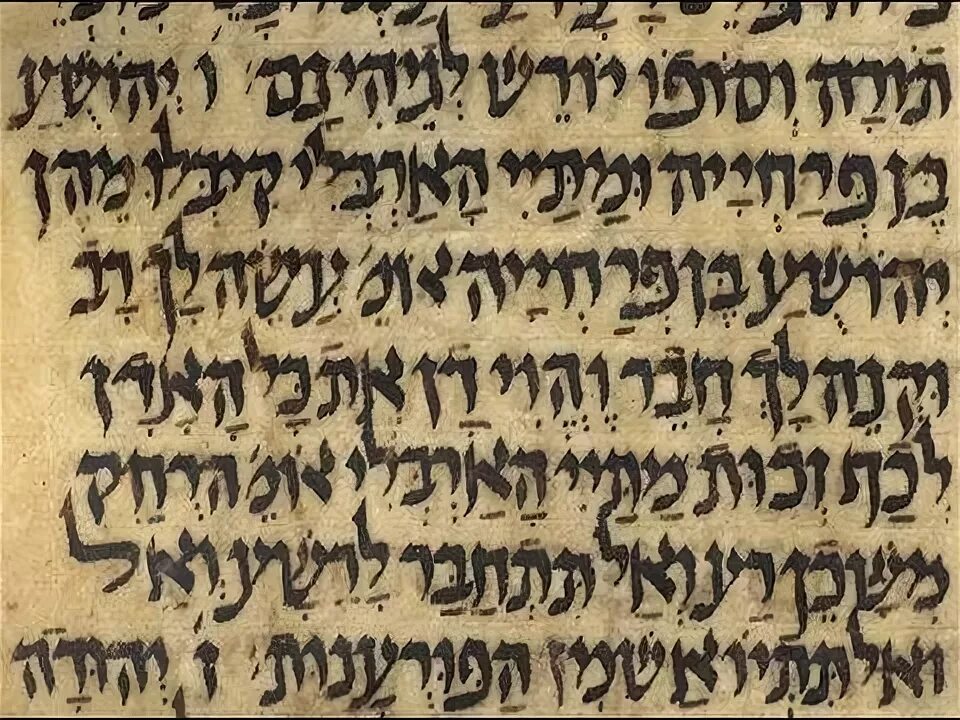 תורה וסופו יורש לגיהינם ו יהושע
בן פרחייה ומתיי הארבלי קיבלו מהן
יהושע בן פרחייה אומ׳ עשה לך רב
וקנה לך חבר והוי דן את כל האדם
לכף זכות מתיי הארבלי אומ׳ הרחק
משכן רע ואל תתחבר לרשע ואל
ואל תתייאש מן הפורענות ז יהודה